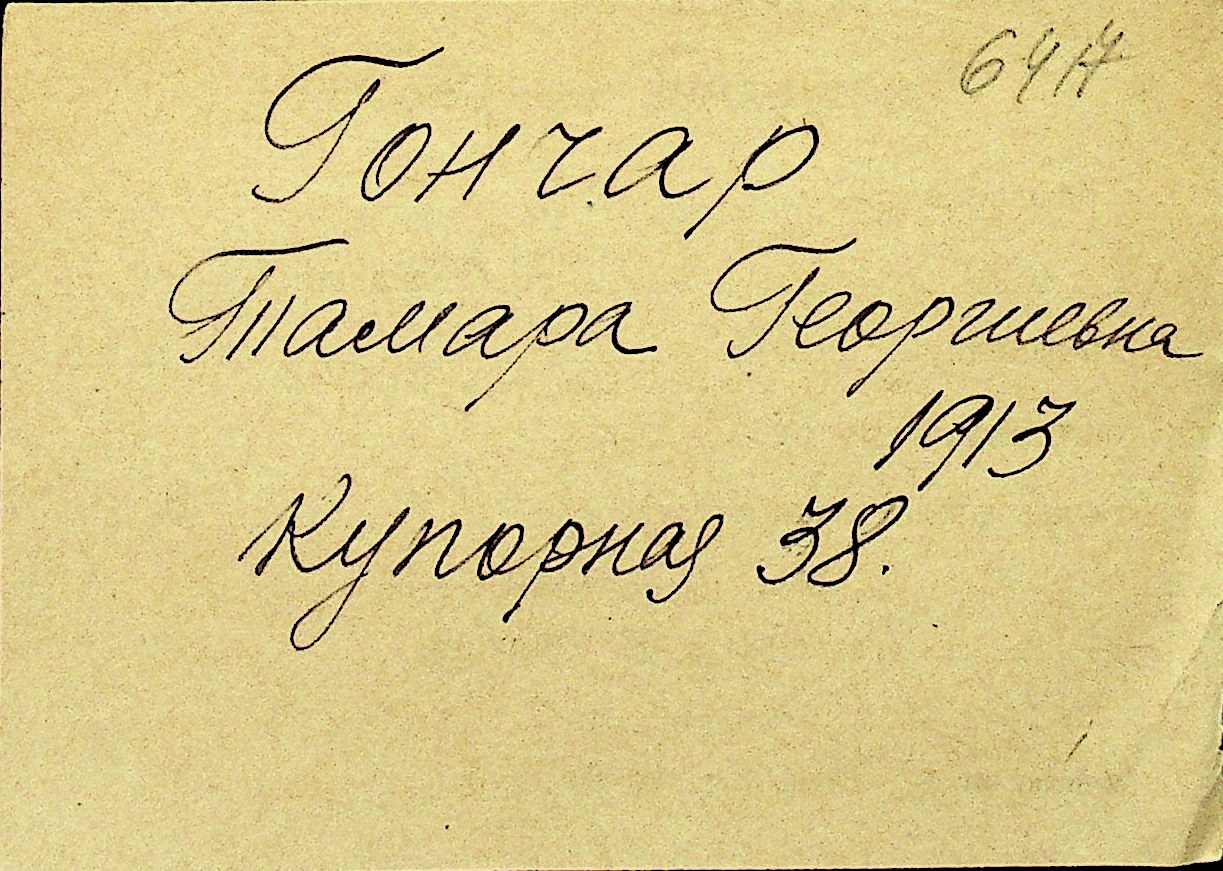 6417
Гончар
Тамара Георгиевна
1913
Купорная 38.